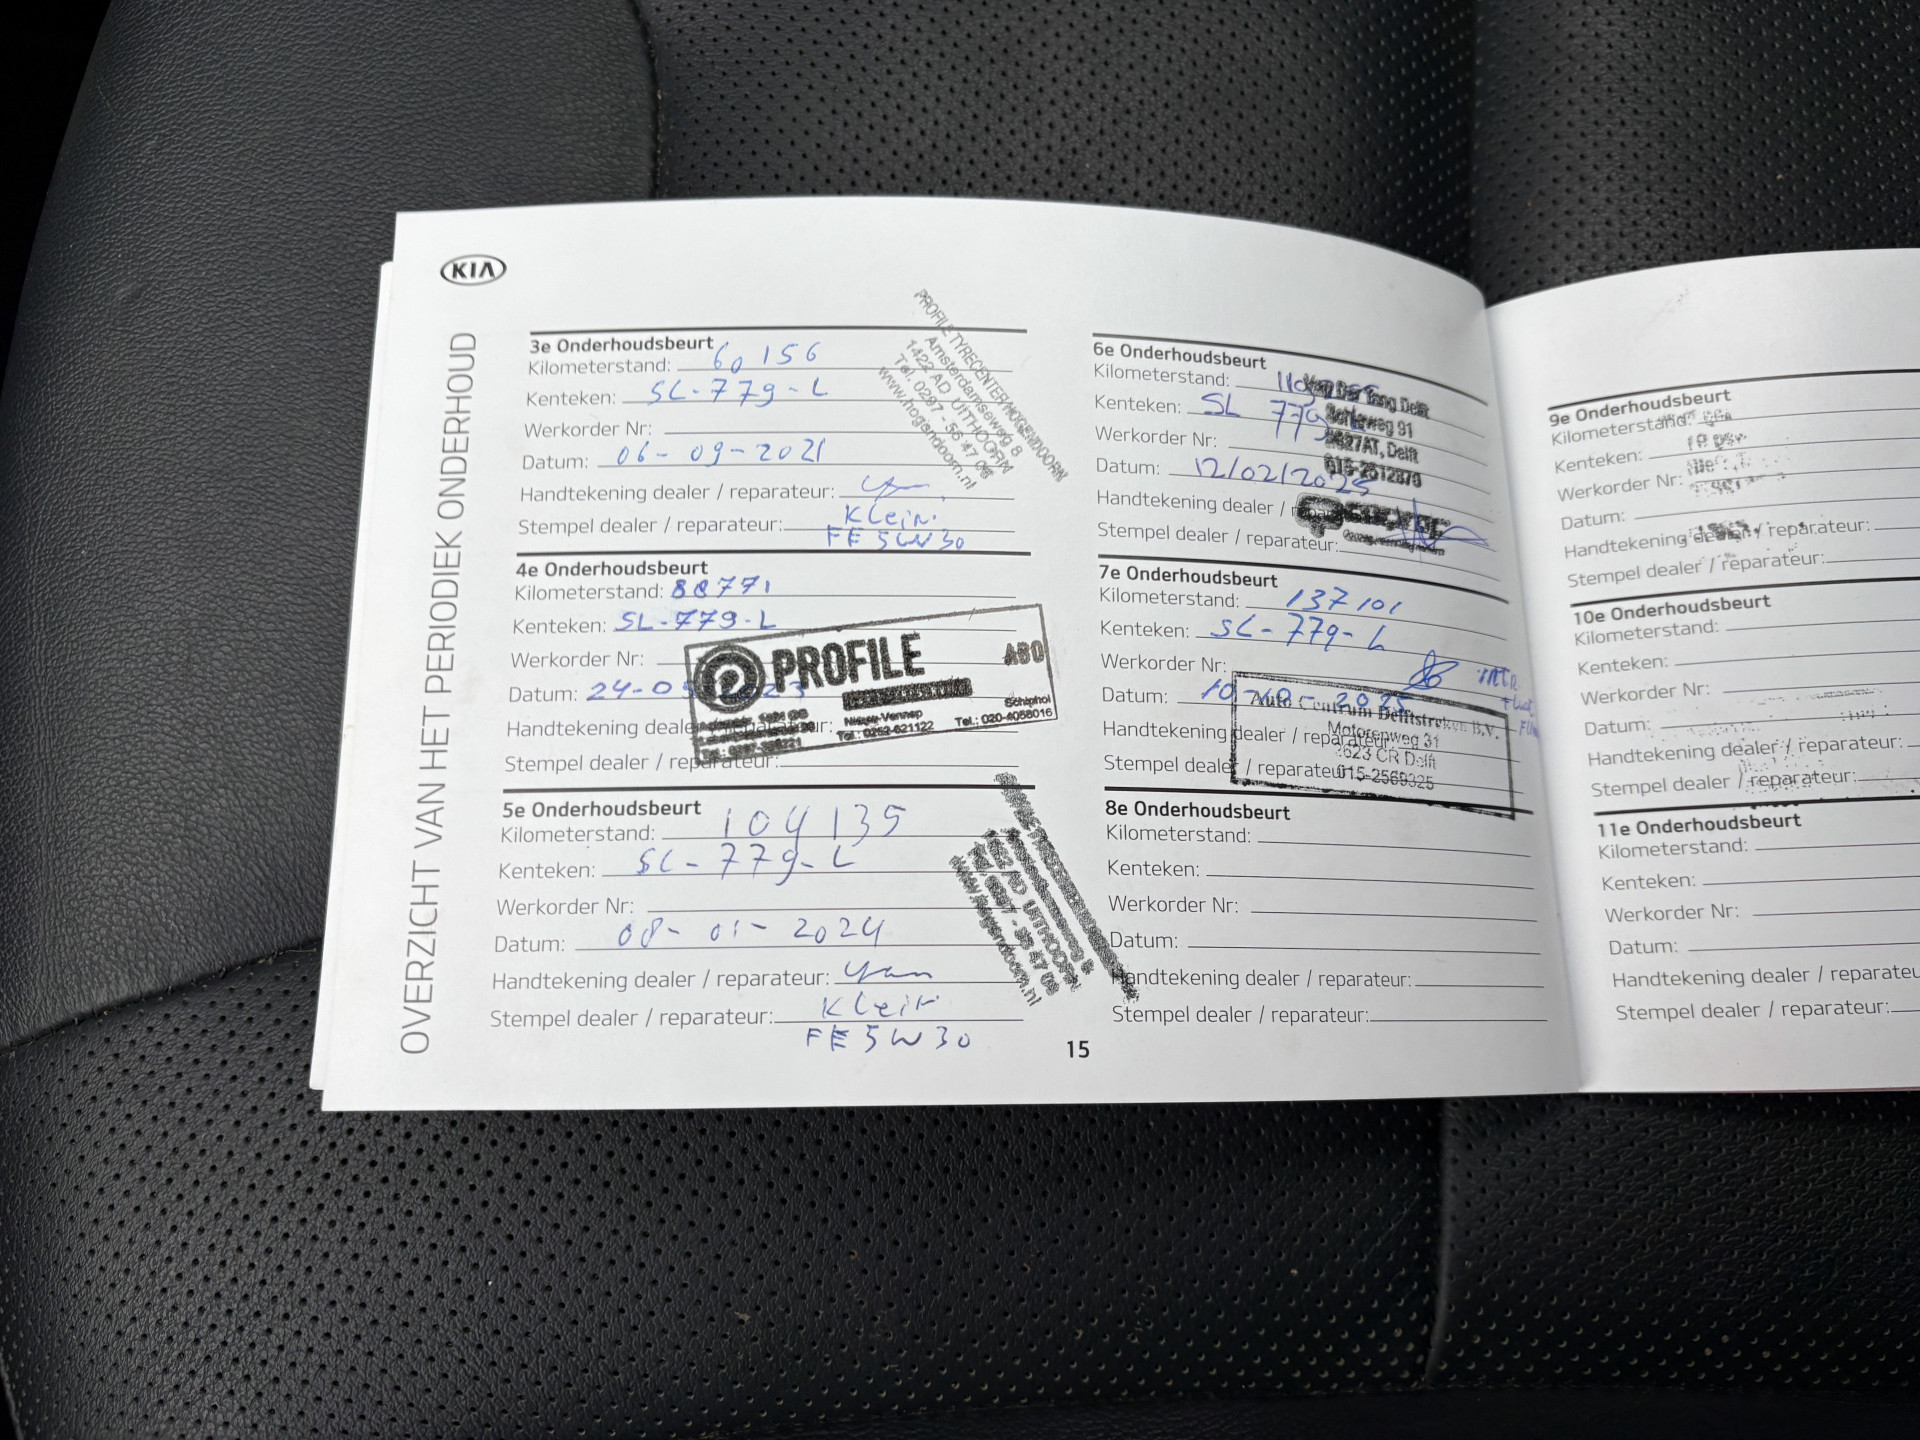 KIA
OVERZICHT VAN HET PERIODIEK ONDERHOUD
3e Onderhoudsbeurt
Kilometerstand: 60 156
Kenteken: SL-779-L
Werkorder Nr:
Datum: 06-09-2021
Handtekening dealer / reparateur:
Stempel dealer / reparateur: Klein
FE 5W30
PROFILE TYRECENTER HOGENDOORN
Amsterdamseweg 8
1422 AD UITHOORN
Tel. 0297 - 56 47 06
www.hogendoorn.nl
4e Onderhoudsbeurt
Kilometerstand: 88771
Kenteken: SL-779-L
Werkorder Nr:
Datum: 24-05-2023
Handtekening dealer / reparateur:
Stempel dealer / reparateur:
PROFILE
Schiphol
Nieuw-Vennep
Tel.: 0252-621122
Tel.: 020-4058016
5e Onderhoudsbeurt
Kilometerstand: 104135
Kenteken: SL-779-L
Werkorder Nr:
Datum: 08-01-2024
Handtekening dealer / reparateur:
Stempel dealer / reparateur: Klein
FE 5W30
UITHOORN
6e Onderhoudsbeurt
Kilometerstand:
Kenteken: SL 779
Werkorder Nr:
Datum: 12/02/2025
Handtekening dealer /
Stempel dealer / reparateur:
Van Der Tang Delft
Schieweg 91
2627AT, Delft
015-2612870
7e Onderhoudsbeurt
Kilometerstand: 137101
Kenteken: SL-779-L
Werkorder Nr:
Datum: 10-10-2025
Handtekening dealer / reparateur:
Stempel dealer / reparateur:
Auto Centrum Delftstreken B.V.
Motorenweg 31
2623 CR Delft
015-2569325
8e Onderhoudsbeurt
Kilometerstand:
Kenteken:
Werkorder Nr:
Datum:
Handtekening dealer / reparateur:
Stempel dealer / reparateur:
15
9e Onderhoudsbeurt
Kilometerstand:
Kenteken:
Werkorder Nr:
Datum:
Handtekening dealer / reparateur:
Stempel dealer / reparateur:
10e Onderhoudsbeurt
Kilometerstand:
Kenteken:
Werkorder Nr:
Datum:
Handtekening dealer / reparateur:
Stempel dealer / reparateur:
11e Onderhoudsbeurt
Kilometerstand:
Kenteken:
Werkorder Nr:
Datum:
Handtekening dealer / reparateu
Stempel dealer / reparateur: